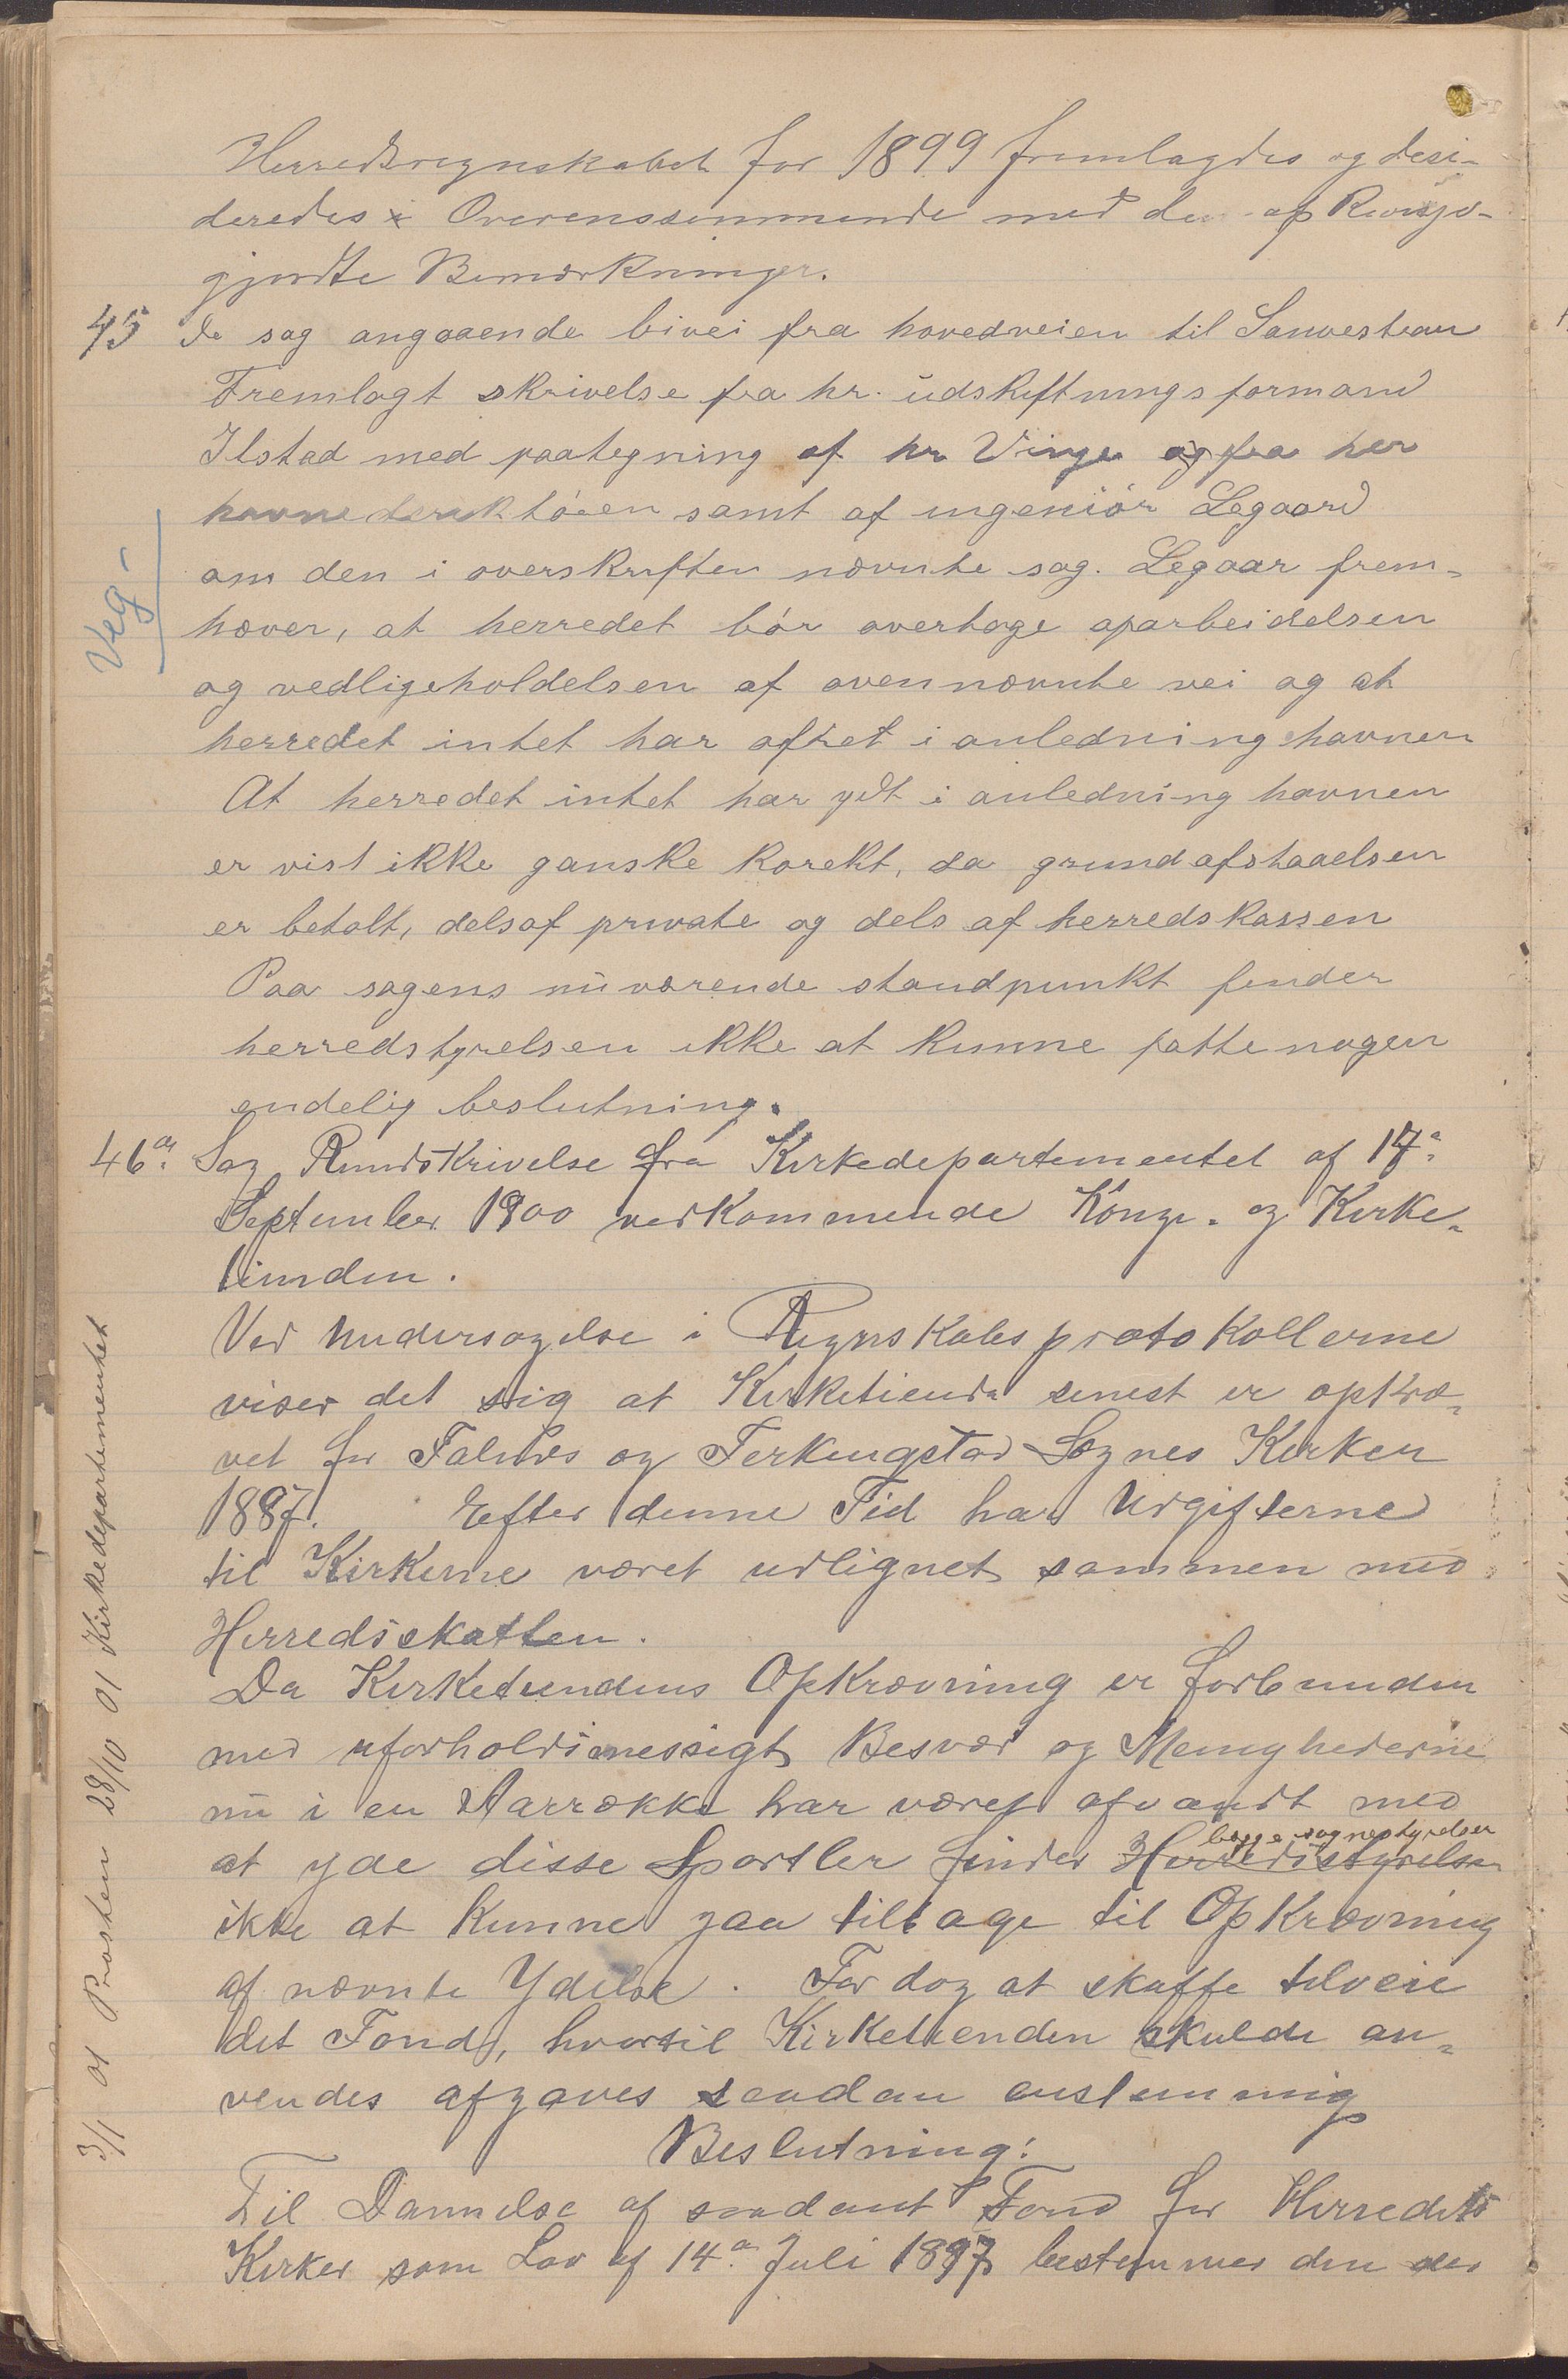 Herredsregnskabet for 1899 fremlagdes og desi-
deredes i Overenssemmende med de af Revisjo-
gjordte Bemærkninger.
45 de sag angaaende bivei fra hovedveien til Sanvestran
Fremlagt skrivelse fra hr. udskiftningsformand
Ilstad med paategning af hr Vinge og fra her
havnederektøren samt af ingeniør Legaard
om den i overskriften nævnte sag. Legaar frem-
hæver, at herredet bør overtage oparbeidelsen
og vedligeholdelsen af ovennævnte vei og at
herredet intet har ofret i anledning havnen
At herredet intet har ydt i anledning havnen
er vist ikke ganske korekt, da grundafstaaelsen
er betalt, dels af private og dels af herredskassen
Paa sagens nuværende standpunkt finder
herredstyrelsen ikke at kunne fatte nogen
endelig beslutning.
Veg-
46de Sag Rundskrivelse fra Kirkedepartementet af 17de
September 1900 vedkommende Konge- og Kirke-
tienden.
Ved Undersøgelse i Regnskabsprotokollerne
viser det sig at Kirketiende senest er opkræ-
vet for Falnes og Ferkingstad Sognes Kirker
1887. Efter denne Tid har Udgifterne
til Kirkerne været udlignet sammen med
Herredsskatten.
Da Kirketiendens Opkrævning er forbunden
med uforholdsmessigt Besvær og Menighederne
nu i en Aarrække har været afvandt med
begge sognestyrelser
at yde disse Sportler finder Herredsstyrelsen
ikke at kunne gaa tilbage til Opkrævning
af nævnte Ydelse. For dog at skaffe tilveie
det Fond, hvortil Kirketienden skulde an-
vendes afgaves saadan enstemmig
Beslutning:
Til Dannelse af saadant Fond for Herredets
Kirker som Lov af 14de Juli 1897 bestemmer den der
3/1 01 Prosten 28/10 01 Kirkedepartementet